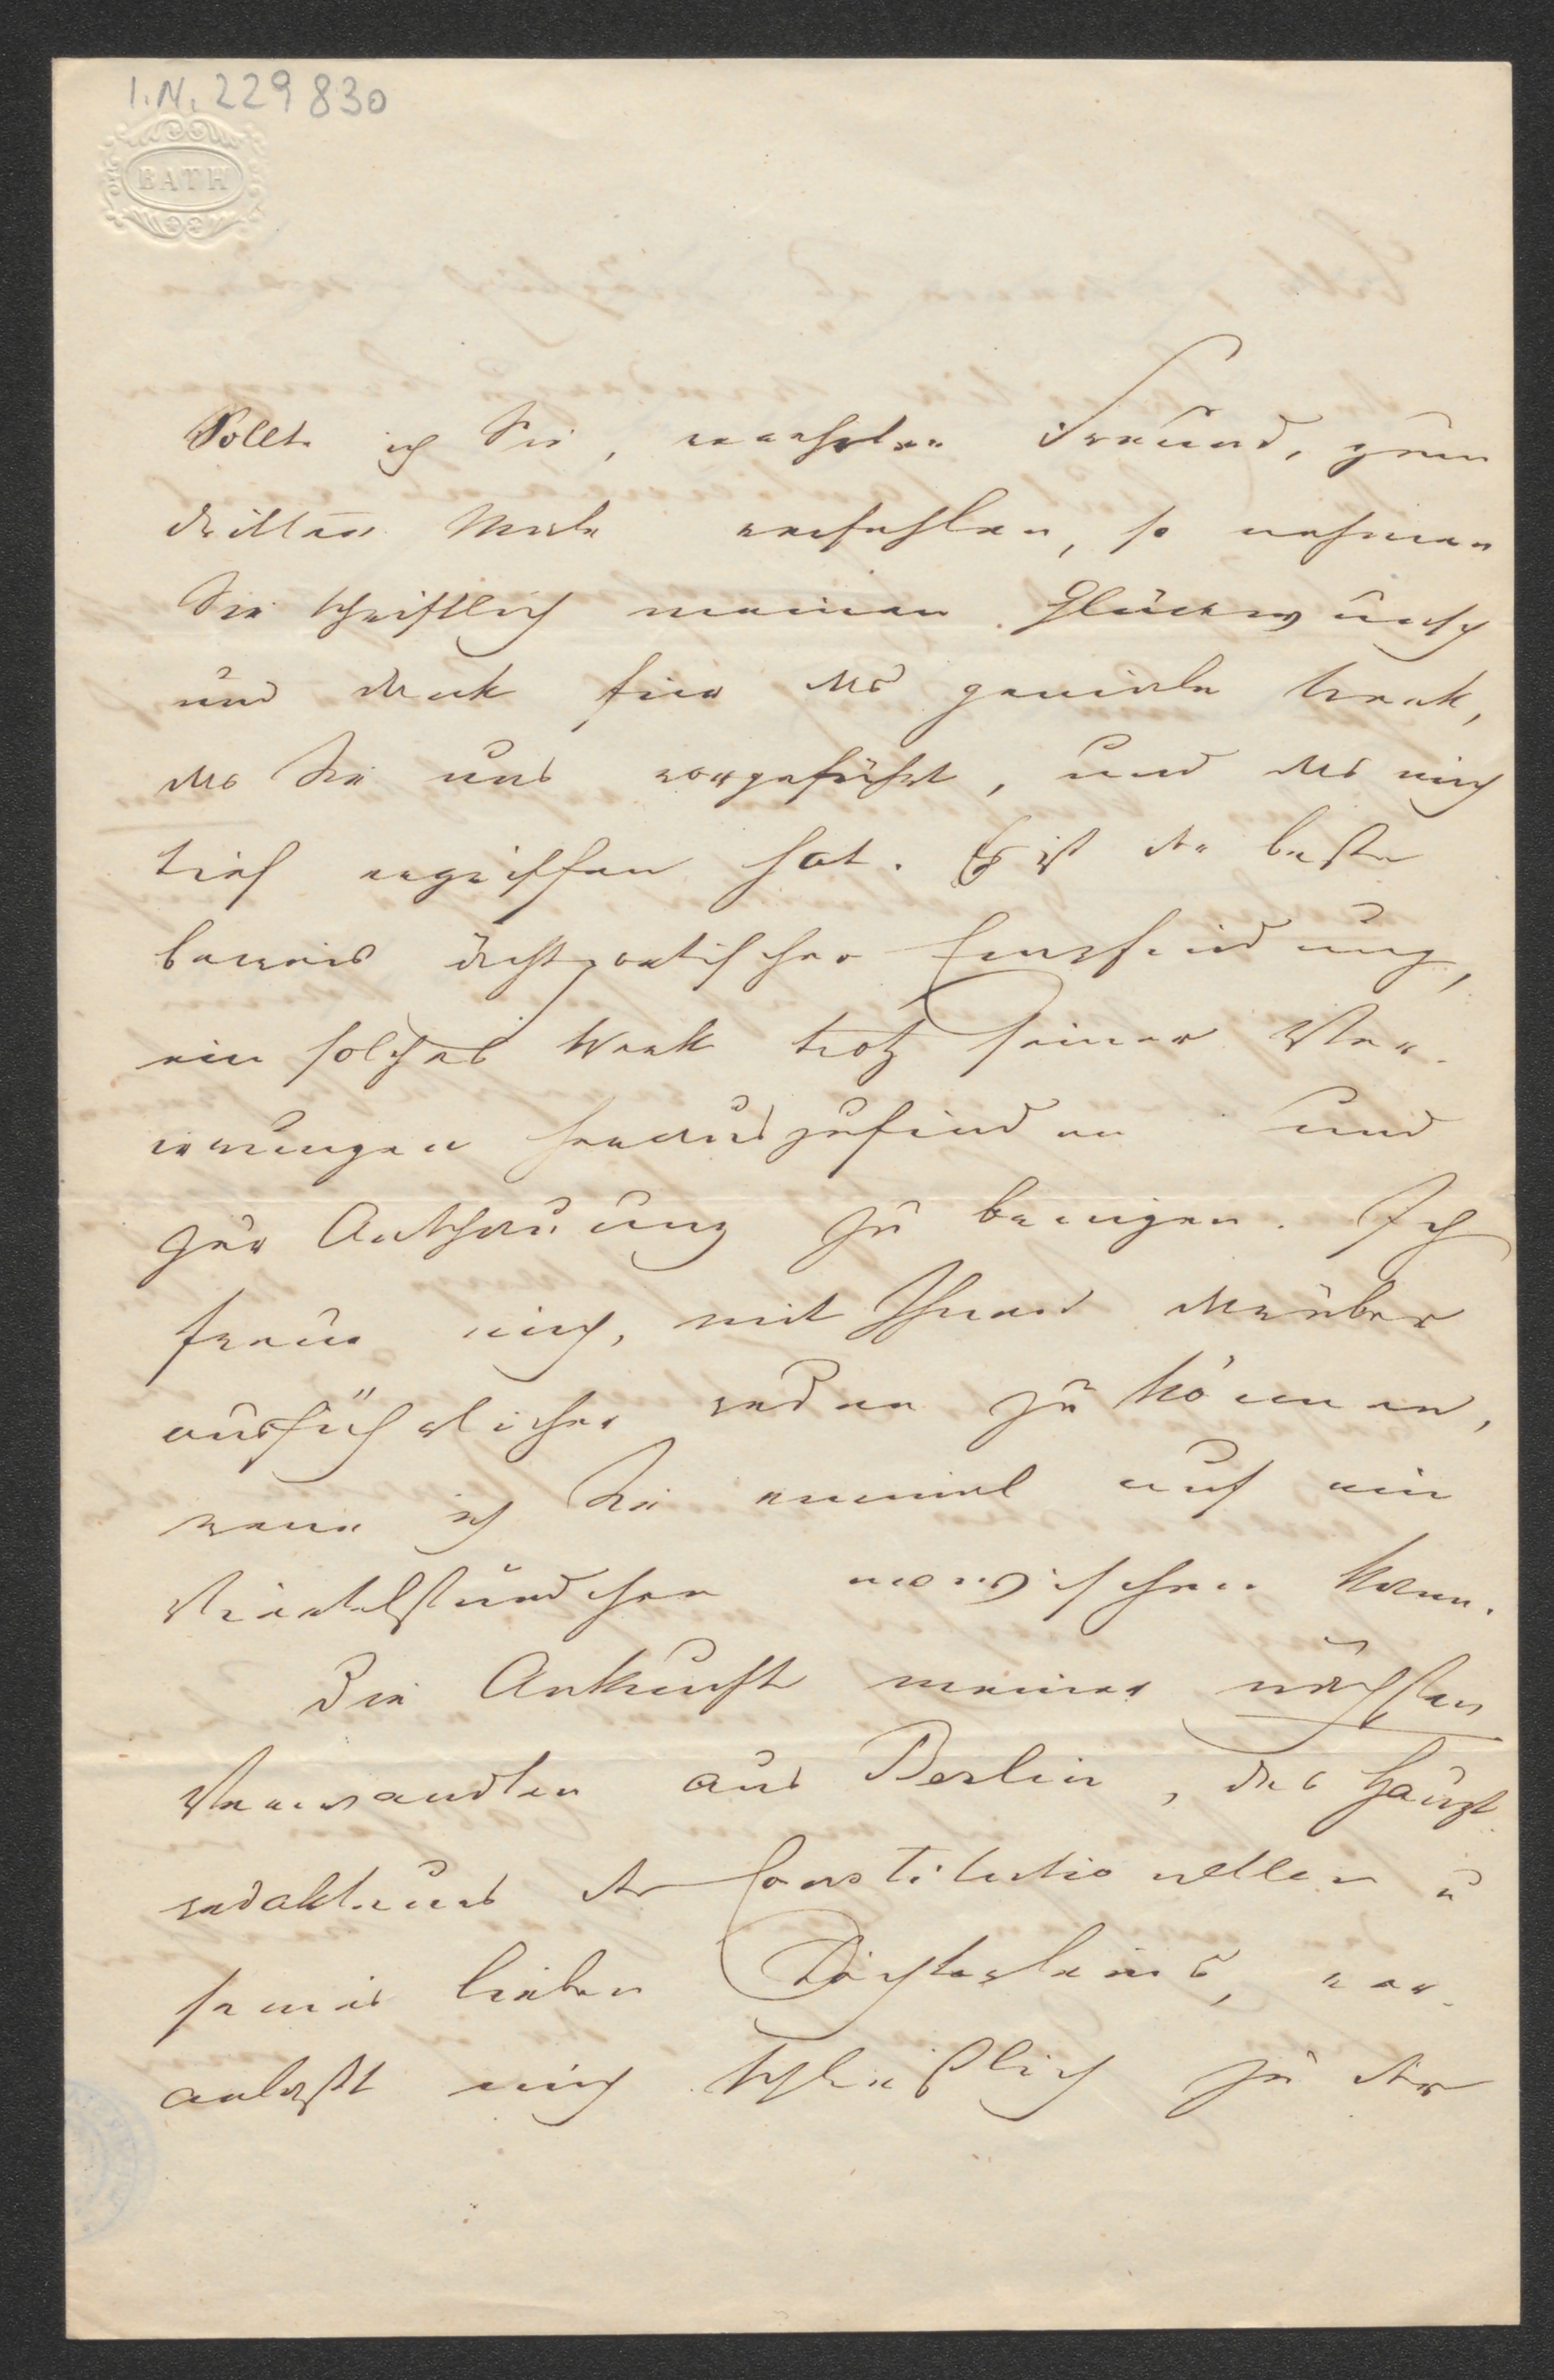 I.N. 229830
BATH
Sollte ich Sie, verehrter Freund, zum
dritten Male verfehlen, so nehmen
Sie schriftlich meinen Glückwunsch
und Dank für das geniale Werk,
das Sie uns vorgeführt, und das mich
tief ergriffen hat. Es ist der beste
Beweis ächt poetischer Empfindung,
ein solches Werk trotz seiner Ver-
irrungen herauszufinden und
zur Anschauung zu bringen. Ich
freue mich, mit Ihnen darüber
ausführlicher reden zu können,
wenn ich Sie einmal auf ein
Viertelstündchen erwischen kann.
Die Ankunft meines nächsten
Verwandten aus Berlin, des Haupt-
redakteurs der Constitutionellen u
seines lieben Töchterleins, ver-
anlaßt mich schließlich zu der